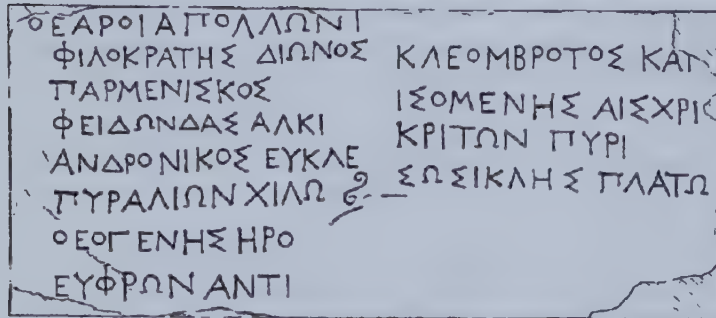 ΘΕΑΡΟΙ ΑΠΟΛΛΩΝΙ
ΦΙΛΟΚΡΑΤΗΣ ΔΙΩΝΟΣ
ΠΑΡΜΕΝΙΣΚΟΣ
ΦΕΙΔΩΝΔΑΣ ΑΛΚΙ
ΑΝΔΡΟΝΙΚΟΣ ΕΥΚΛΕ
ΠΥΡΑΛΙΩΝ ΧΙΛΩ
ΘΕΟΓΕΝΗΣ ΗΡΟ
ΕΥΦΡΩΝ ΑΝΤΙ
ΚΛΕΟΜΒΡΟΤΟΣ ΚΑΤ
ΙΣΟΜΕΝΗΣ ΑΙΣΧΡΙ
ΚΡΙΤΩΝ ΠΥΡΙ
ΣΩΣΙΚΛΗΣ ΠΛΑΤΩ